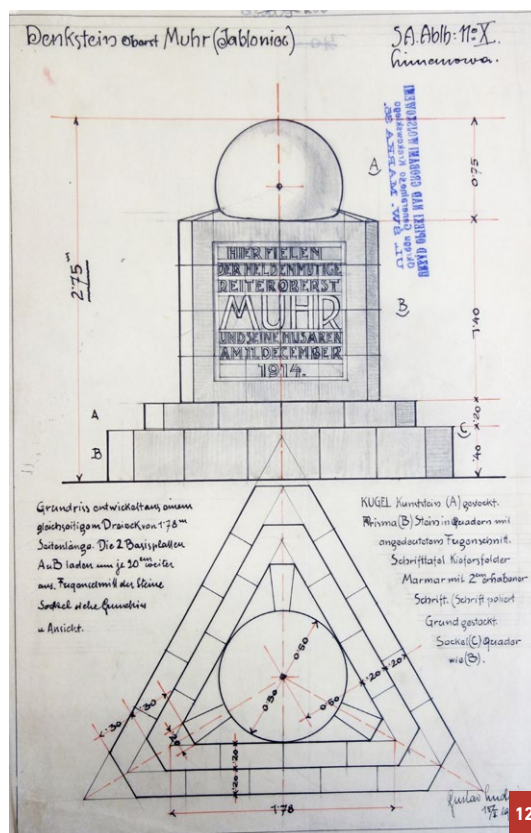 Denkstein Oberst Muhr (Jabloniec)
S.A. Abth: No X.
Limanowa.
URZĄD OPIEKI NAD GROBAMI WOJENNYMI
Okręgu Generalnego Krakowskiego
UL. ŚW. MARKA
A
0.75
2.75 m
HIER FIELEN
DER HELDENMUTIGE
REITEROBERST
MUHR
UND SEINE HUSAREN
AM 11. DECEMBER
1914.
B
1.40
A
.20
C
B
.40
Grundriss entwickelt aus einem
gleichseitigem Dreieck von 1.78 m
Seitenlänge. Die 2 Basisplatten
A u B laden um je 20 cm weiter
aus. Fugenschnitt der Steine
Sockel siehe Grundriss
u Ansicht.
KUGEL Kunststein (A) gestockt.
Prisma (B) Stein in Quadern mit
angedeutetem Fugenschnitt.
Schrifttafel Kiefersfelder
Marmar mil 2 cm erhabener
Schrift. (Schrift poliert
Grund gestockt.
Sockel (C) Quader
wie (B).
0.50
0.50
0.50
.20
.20
.30
.30
.20
.20
.20
1.78
Gustav Ludwig
12